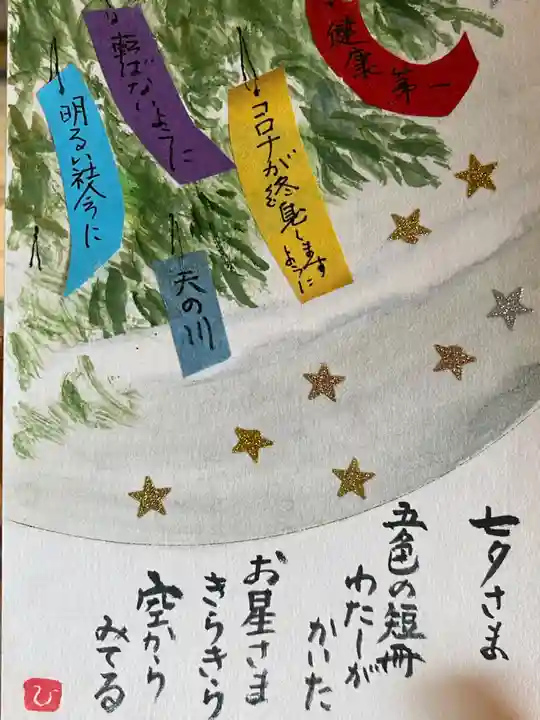 健康第一
転ばないように
コロナが終息しますように
明るい社会に
天の川
七夕さま
五色の短冊
わたしが
かいた
お星さま
きらきら
空から
みてる
ひ